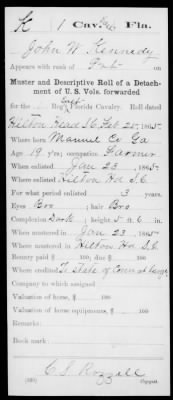 K | 1 Cav. | Fla.
John W. Kennedy
Appears with rank of Pvt on
Muster and Descriptive Roll of a Detach-
ment of U. S. Vols. forwarded
for the 1 Reg't Florida Cavalry. Roll dated
Hilton Head S.C. Feb 25, 1865.
Where born Co Ga
Age 19 y'rs; occupation Farmer
When enlisted Jan 23, 1865.
Where enlisted Hilton Hd S.C.
For what period enlisted 3 years.
Eyes Bro ; hair Bro
Complexion Dark ; height 5 ft. 6 in.
When mustered in Jan 23, 1865.
Where mustered in Hilton Hd S.C.
Bounty paid $ 100; due $ 100
Where credited To State of Conn at large
Company to which assigned
Valuation of horse, $ 100
Valuation of horse equipments, $ 100
Remarks:
Book mark:
Copyist.